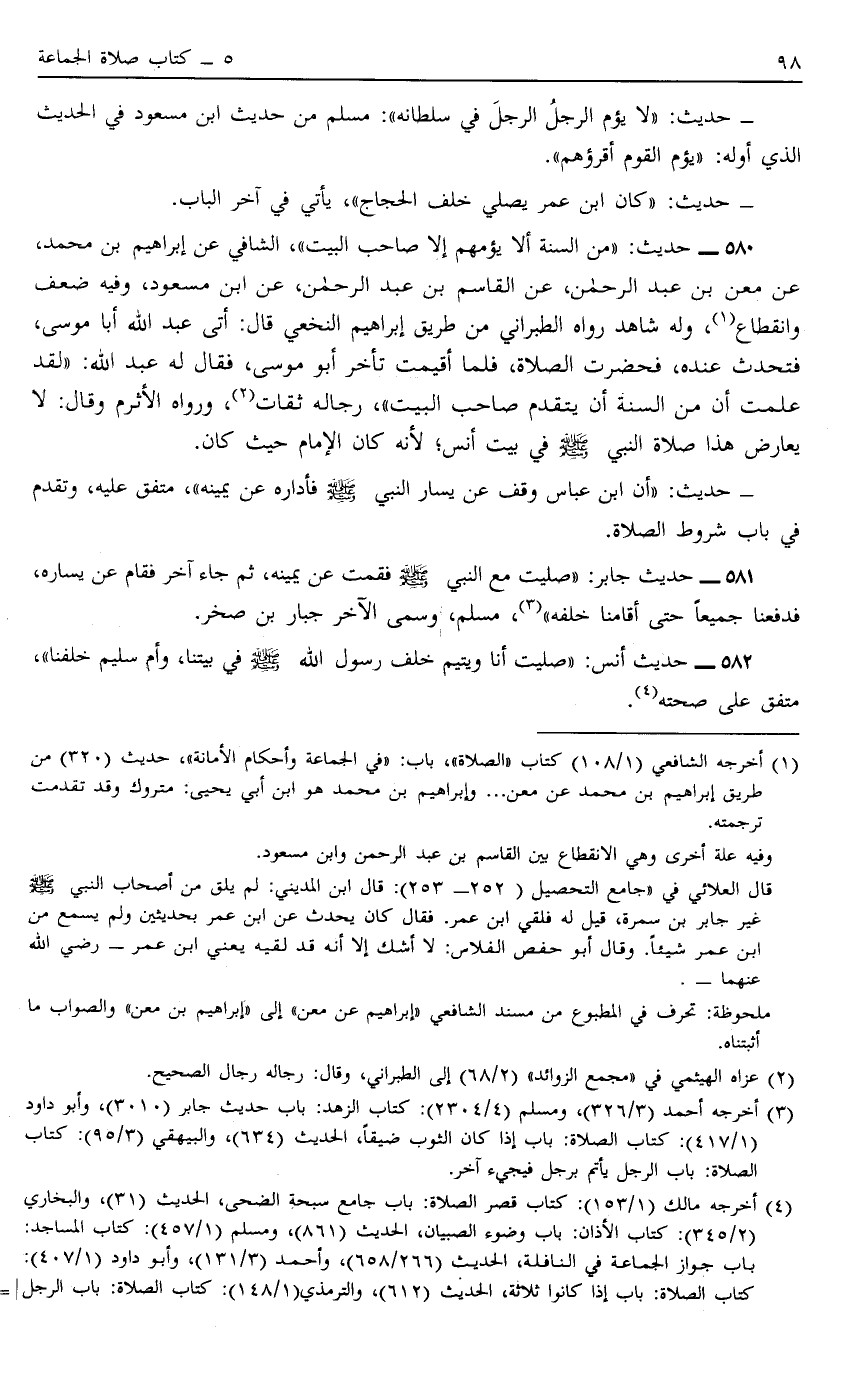 ٩٨ ٥ ـ كتاب صلاة الجماعة
ـ حديث: «لا يؤم الرجلُ الرجلَ في سلطانه»: مسلم من حديث ابن مسعود في الحديث
الذي أوله: «يؤم القوم أقرؤهم».
ـ حديث: «كان ابن عمر يصلي خلف الحجاج»، يأتي في آخر الباب.
٥٨٠ ـ حديث: «من السنة ألا يؤمهم إلا صاحب البيت»، الشافي عن إبراهيم بن محمد،
عن معن بن عبد الرحمٰن، عن القاسم بن عبد الرحمٰن، عن ابن مسعود، وفيه ضعف
وانقطاع(١)، وله شاهد رواه الطبراني من طريق إبراهيم النخعي قال: أتى عبد الله أبا موسى،
فتحدث عنده، فحضرت الصلاة، فلما أقيمت تأخر أبو موسى، فقال له عبد الله: «لقد
علمت أن من السنة أن يتقدم صاحب البيت»، رجاله ثقات(٢)، ورواه الأثرم وقال: لا
يعارض هذا صلاة النبي ﷺ في بيت أنس؛ لأنه كان الإمام حيث كان.
ـ حديث: «أن ابن عباس وقف عن يسار النبي ﷺ فأداره عن يمينه»، متفق عليه، وتقدم
في باب شروط الصلاة.
٥٨١ ـ حديث جابر: «صليت مع النبي ﷺ فقمت عن يمينه، ثم جاء آخر فقام عن يساره،
فدفعنا جميعاً حتى أقامنا خلفه»(٣)، مسلم، وسمى الآخر جبار بن صخر.
٥٨٢ ـ حديث أنس: «صليت أنا ويتيم خلف رسول الله ﷺ في بيتنا، وأم سليم خلفنا»،
متفق على صحته(٤).
(١) أخرجه الشافعي (١٠٨/١) كتاب «الصلاة»، باب: «في الجماعة وأحكام الأمانة»، حديث (٣٢٠) من
طريق إبراهيم بن محمد عن معن... وإبراهيم بن محمد هو ابن أبي يحيى: متروك وقد تقدمت
ترجمته.
وفيه علة أخرى وهي الانقطاع بين القاسم بن عبد الرحمن وابن مسعود.
قال العلائي في «جامع التحصيل ( ٢٥٢ـ ٢٥٣): قال ابن المديني: لم يلق من أصحاب النبي ﷺ
غير جابر بن سمرة، قيل له فلقي ابن عمر. فقال كان يحدث عن ابن عمر بحديثين ولم يسمع من
ابن عمر شيئاً. وقال أبو حفص الفلاس: لا أشك إلا أنه قد لقيه يعني ابن عمر ـ رضي الله
عنهما ـ .
ملحوظة: تحرف في المطبوع من مسند الشافعي «إبراهيم عن معن» إلى «إبراهيم بن معن» والصواب ما
أثبتناه.
(٢) عزاه الهيثمي في «مجمع الزوائد» (٦٨/٢) إلى الطبراني، وقال: رجاله رجال الصحيح.
(٣) أخرجه أحمد (٣٢٦/٣)، ومسلم (٢٣٠٤/٤): كتاب الزهد: باب حديث جابر (٣٠١٠)، وأبو داود
(٤١٧/١): كتاب الصلاة: باب إذا كان الثوب ضيقاً، الحديث (٦٣٤)، والبيهقي (٩٥/٣): كتاب
الصلاة: باب الرجل يأتم برجل فيجيء آخر.
(٤) أخرجه مالك (١٥٣/١): كتاب قصر الصلاة: باب جامع سبحة الضحى، الحديث (٣١)، والبخاري
(٣٤٥/٢): كتاب الأذان: باب وضوء الصبيان، الحديث (٨٦١)، ومسلم (٤٥٧/١): كتاب المساجد:
باب جواز الجماعة في النافلة، الحديث (٦٥٨/٢٦٦)، وأحمد (١٣١/٣)، وأبو داود (٤٠٧/١):
كتاب الصلاة: باب إذا كانوا ثلاثة، الحديث (٦١٢)، والترمذي(١٤٨/١): كتاب الصلاة: باب الرجل =